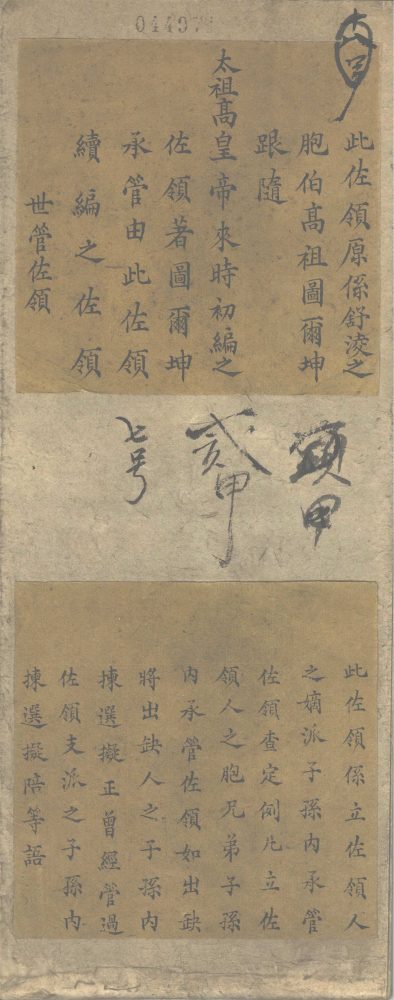 04497
此佐領原係舒淩之
胞伯高祖圖爾坤
跟隨
太祖高皇帝來時初編之
佐領著圖爾坤
承管由此佐領
續編之佐領
世管佐領
頭甲
貳甲
七号
此佐領係立佐領人
之嫡派子孫内承管
佐領查定例凢立佐
領人之胞兄弟子孫
内承管佐領如出缺
將出缺人之子孫内
揀選擬正曾經管過
佐領支派之子孫内
揀選擬陪等語